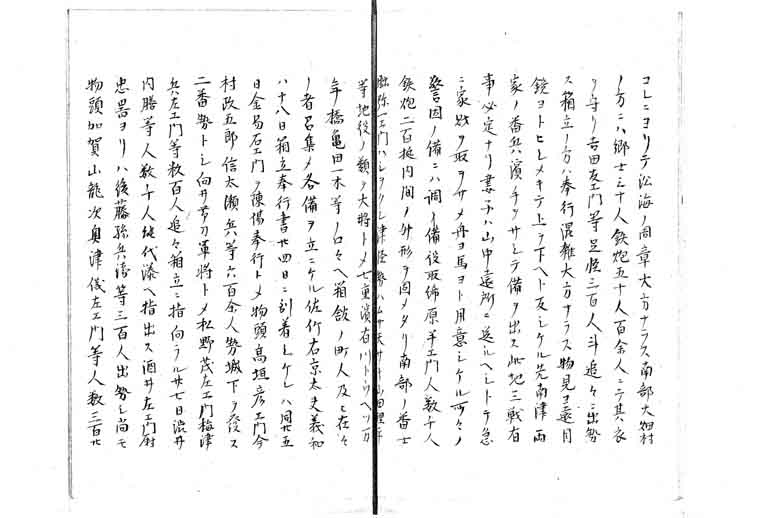 コレニヨリテ沿海ノ周章大方ナラス南部大畑村
ノ方ニハ郷士三十人鉄炮五十人百余人ニテ其衣
ヲ守リ吉田左エ門等足軽三百人斗追々ニ出勢
ス箱立ノ方ハ奉行混雑大方ナラス物見ヨ遠目
鏡ヨトヒシメキテ上ヲ下ヘト反シケル先南津両
家ノ番兵濱手ヲサシテ備ヲ出ス此地ニ戦有
事必定ナリ妻子ハ山中遠所ニ送ルヘシトテ急
ニ家財ヲ取ヲサメ舟ヨ馬ヨト用意シケル所々ノ
警固ノ備ニハ調ノ備役取締原半エ門人数千人
鉄炮二百挺内間ノ外形ヲ固メタリ南部ノ番士
弥一エ門ハ 津軽勢ハ 山田
等地役ノ類ヲ大将トメ七重濱有川トウヘツカ
年橋亀田一木等ノ口々ヘ箱館ノ町人及ヒ在々
ノ者召集メ各備ヲ立ニケル佐竹右京太夫義和
ハ十八日箱立奉行書廿四日ニ到着シケレハ同廿五
日金易右エ門ヲ陳場奉行トメ物頭高垣彦エ門今
村政五郎信太瀬兵ハ等六百余人勢城下ヲ發ス
二番勢トシ向井 軍将トメ松野茂左エ門梅津
兵左エ門等数百人追々箱立ニ指向ラル廿七日澁井
内膳等人数千人能代湊ヘ指出ス酒井左エ門尉
忠器ヨリハ後藤孫兵衛等三百人出勢シ尚モ
物頭加賀山龍次奥津儀左エ門等人数三百廿